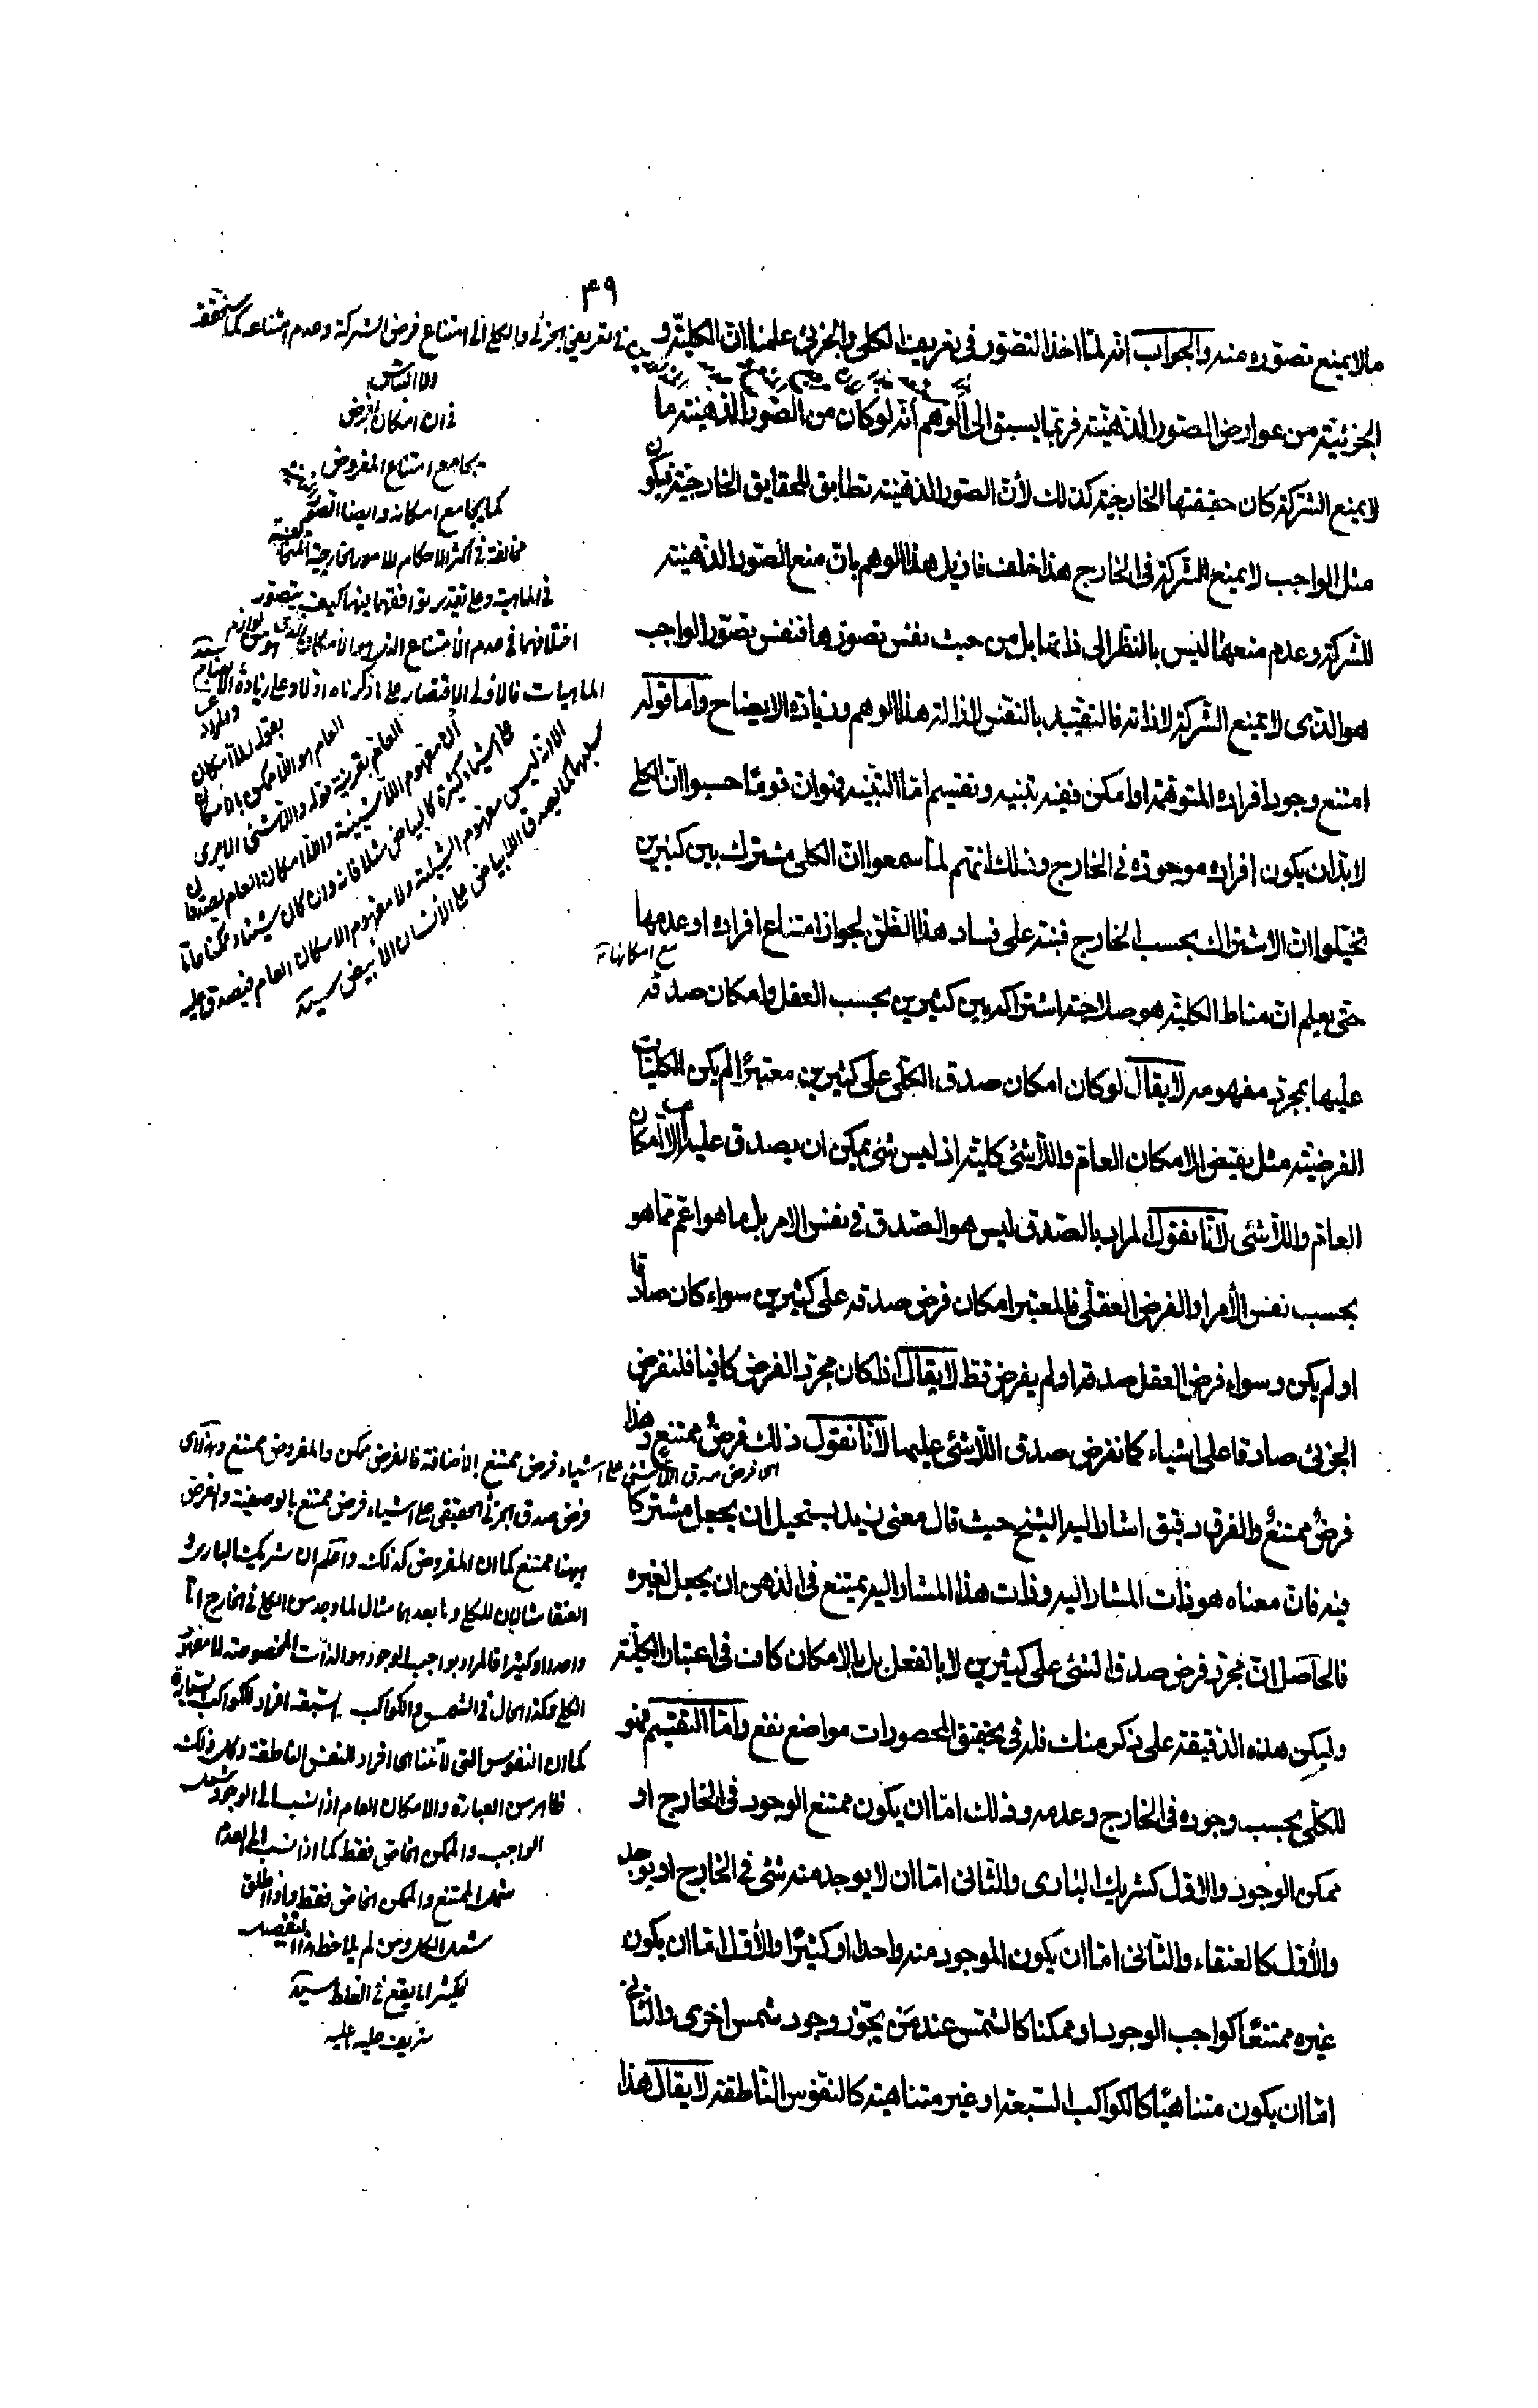 ٤٩
ما لا يمنع تصوّره منه والجواب انّه لمّا اخذ التصّور فى تعريف الكلى والجزئى علمنا انّ الكليّة و
الجزئية من عوارض الصّور الذهنيّة فربّما يسبق الى الوهم انّه لو كان من الصّور الذّهنيّة ما
لا يمنع الشركة كان حقيقتها الخارجيّة كذلك لأنّ الصّور الذهنيّة تطابق للحقايق الخارجيّة فيكون
مثل الواجب لا يمنع الشركة فى الخارج هذا خلف فازيل هذا الوهم بانّ منع الصّور الذّهنيّة
للشركة وعدم منعها ليس بالنّظر الى ذاتها بل من حيث نفس تصوّرها فنفس تصوّر الواجب
هو الذى لا يمنع الشّركة لا ذاته فالتقييد بالنفس لازالة هذا الوهم وزيادة الايضاح وامّا قوله
امتنع وجود افراده المتوهّمة او امكن ففيه تنبيه وتقسيم امّا التنبيه فهو انّ قومًا حسبوا انّ الكلى
لا بدّ ان يكون افراده موجودة فى الخارج وذلك انّهم لمّا سمعوا انّ الكلى مشترك بين كثيرين
تخيّلوا انّ الاشتراك بحسب الخارج فنبّه على فساد هذا الظنّ لجواز امتناع افراده او عدمها
مع امكانها
حتى يعلم انّ مناط الكليّة هو صلاحيّة اشتراكه بين كثيرين بحسب العقل وامكان صدقه
عليها بمجرّد مفهومه لا يقال لو كان امكان صدق الكلّى على كثيرين معتبرًا لم يكن الكليّات
الفرضيّة مثل نقيض الامكان العام واللّاشئ كليّة اذ ليس شئ يمكن ان يصدق عليه اللاامكان
العام واللّاشئ لانّا نقول المراد بالصّدق ليس هو الصّدق فى نفس الامر بل ما هو اعمّ ممّا هو
بحسب نفس الأمر او الفرض العقلى فالمعتبر امكان فرض صدقه على كثيرين سواء كان صادقا
او لم يكن وسواء فرض العقل صدقه او لم يفرض قط لا يقال اذا كان مجرّد الفرض كافيا فلنفرض
الجزئى صادقا على اشياء كما نفرض صدق اللّاشئ عليها لانّا نقول ذلك فرضُ ممتنعٍ وهذا
فرضٌ ممتنعٌ والفرق دقيق اشار اليه الشيخ حيث قال معنى زيد يستحيل ان يجعل مشتركا
فيه فانّ معناه هو ذات المشار اليه وذات هذا المشار اليه يمتنع فى الذهن ان يجعل لغيره
فالحاصل انّ مجرّد فرض صدق الشئ على كثيرين لا بالفعل بل بالامكان كاف فى اعتبار الكليّة
وليكن هذه الدقيقة على ذكر منك فلها فى تحقيق المحصورات مواضع نفع وامّا التقسيم فهو
للكلّى بحسب وجوده فى الخارج وعدمه وذلك امّا ان يكون ممتنع الوجود فى الخارج او
ممكن الوجود والاوّل كشريك البارى والثانى امّا ان لا يوجد منه شئ فى الخارج او يوجد
والأوّل كالعنقاء والثّانى امّا ان يكون الموجود منه واحدا او كثيرًا والأوّل امّا ان يكون
غيره ممتنعًا كواجب الوجود او ممكنا كالشّمس عند مَن يجوّز وجود شمس اخرى والثّانى
امّا ان يكون متناهيًا كالكواكب السّبعة او غير متناهية كالنّفوس النّاطقة لا يقال هذا
فى تعريفى الجزئى والكلى الى امتناع فرض الشركة وعدم امتناعه كما ستحققه
فى ان امكان الفرض
يجامع امتناع المفروض
كما يجامع امكانه وايضا الصّور
مخالفة فى اكثر الاحكام للامور الخارجية
فى الماهية وعلى تقدير توافقهما فيها كيف يتصور
اختلافهما فى عدم الامتناع الذى هو الامكان
الماهيات فالاولى الاقتصار على ما ذكرناه اولا وعلى زيادة الايضاح
والمراد
بقوله اللاامكان
العام هو اللاممكن بالامكان
العام بقرينة قوله واللاشئ
ان مفهوم اللاشيئية واللاامكان العام يصدقان
على اشياء كثيرة كالبياض مثلا فانه وان كان شيئا وممكنا عاما
الا انه ليس مفهوم الشيئية ولا مفهوم الامكان العام فيصدق عليه
سلبهما كما يصدق اللابياض على الانسان الابيض سيد
اى فرض صدق اللاشئ على اشياء فرض ممتنع بالاضافة فالفرض ممكن والمفروض ممتنع وهذا اى
فرض صدق الجزئى الحقيقى على اشياء فرض ممتنع بالوصفية والفرض
ههنا ممتنع كما ان المفروض كذلك واعلم ان شريك البارى و
العنقا مثالان للكلى وما بعدها مثال لما وجد من الكلى فى الخارج اما
واحدا او كثيرا فالمراد بواجب الوجود هو الذات المخصوصة لا مفهومه
الكلى وكذا الحال فى الشمس والكواكب السبعة افراد للكواكب السيارة
كما ان النفوس التى لا تتناهى افراد للنفس الناطقة وكل ذلك
ظاهر من العبارة والامكان العام اذا نسب الى الوجود شمل
الواجب والممكن الخاص فقط كما اذا نسب الى العدم
شمل الممتنع والممكن الخاص فقط واذا اطلق
شمل الكل ومن لم يلاحظ هذا التفصيل
فكثيرا ما يقع فى الغلط سيد
شريف عليه